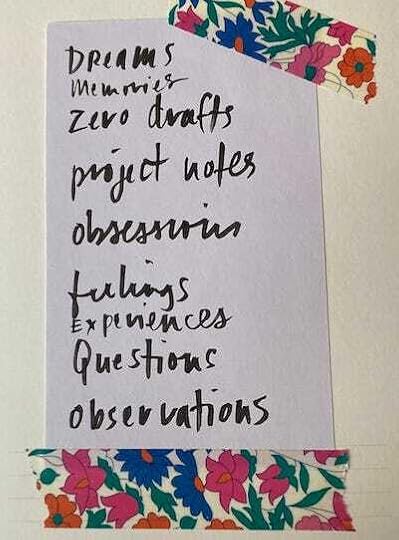 Dreams
Memories
zero drafts
project notes
obsessions
feelings
Experiences
Questions
observations